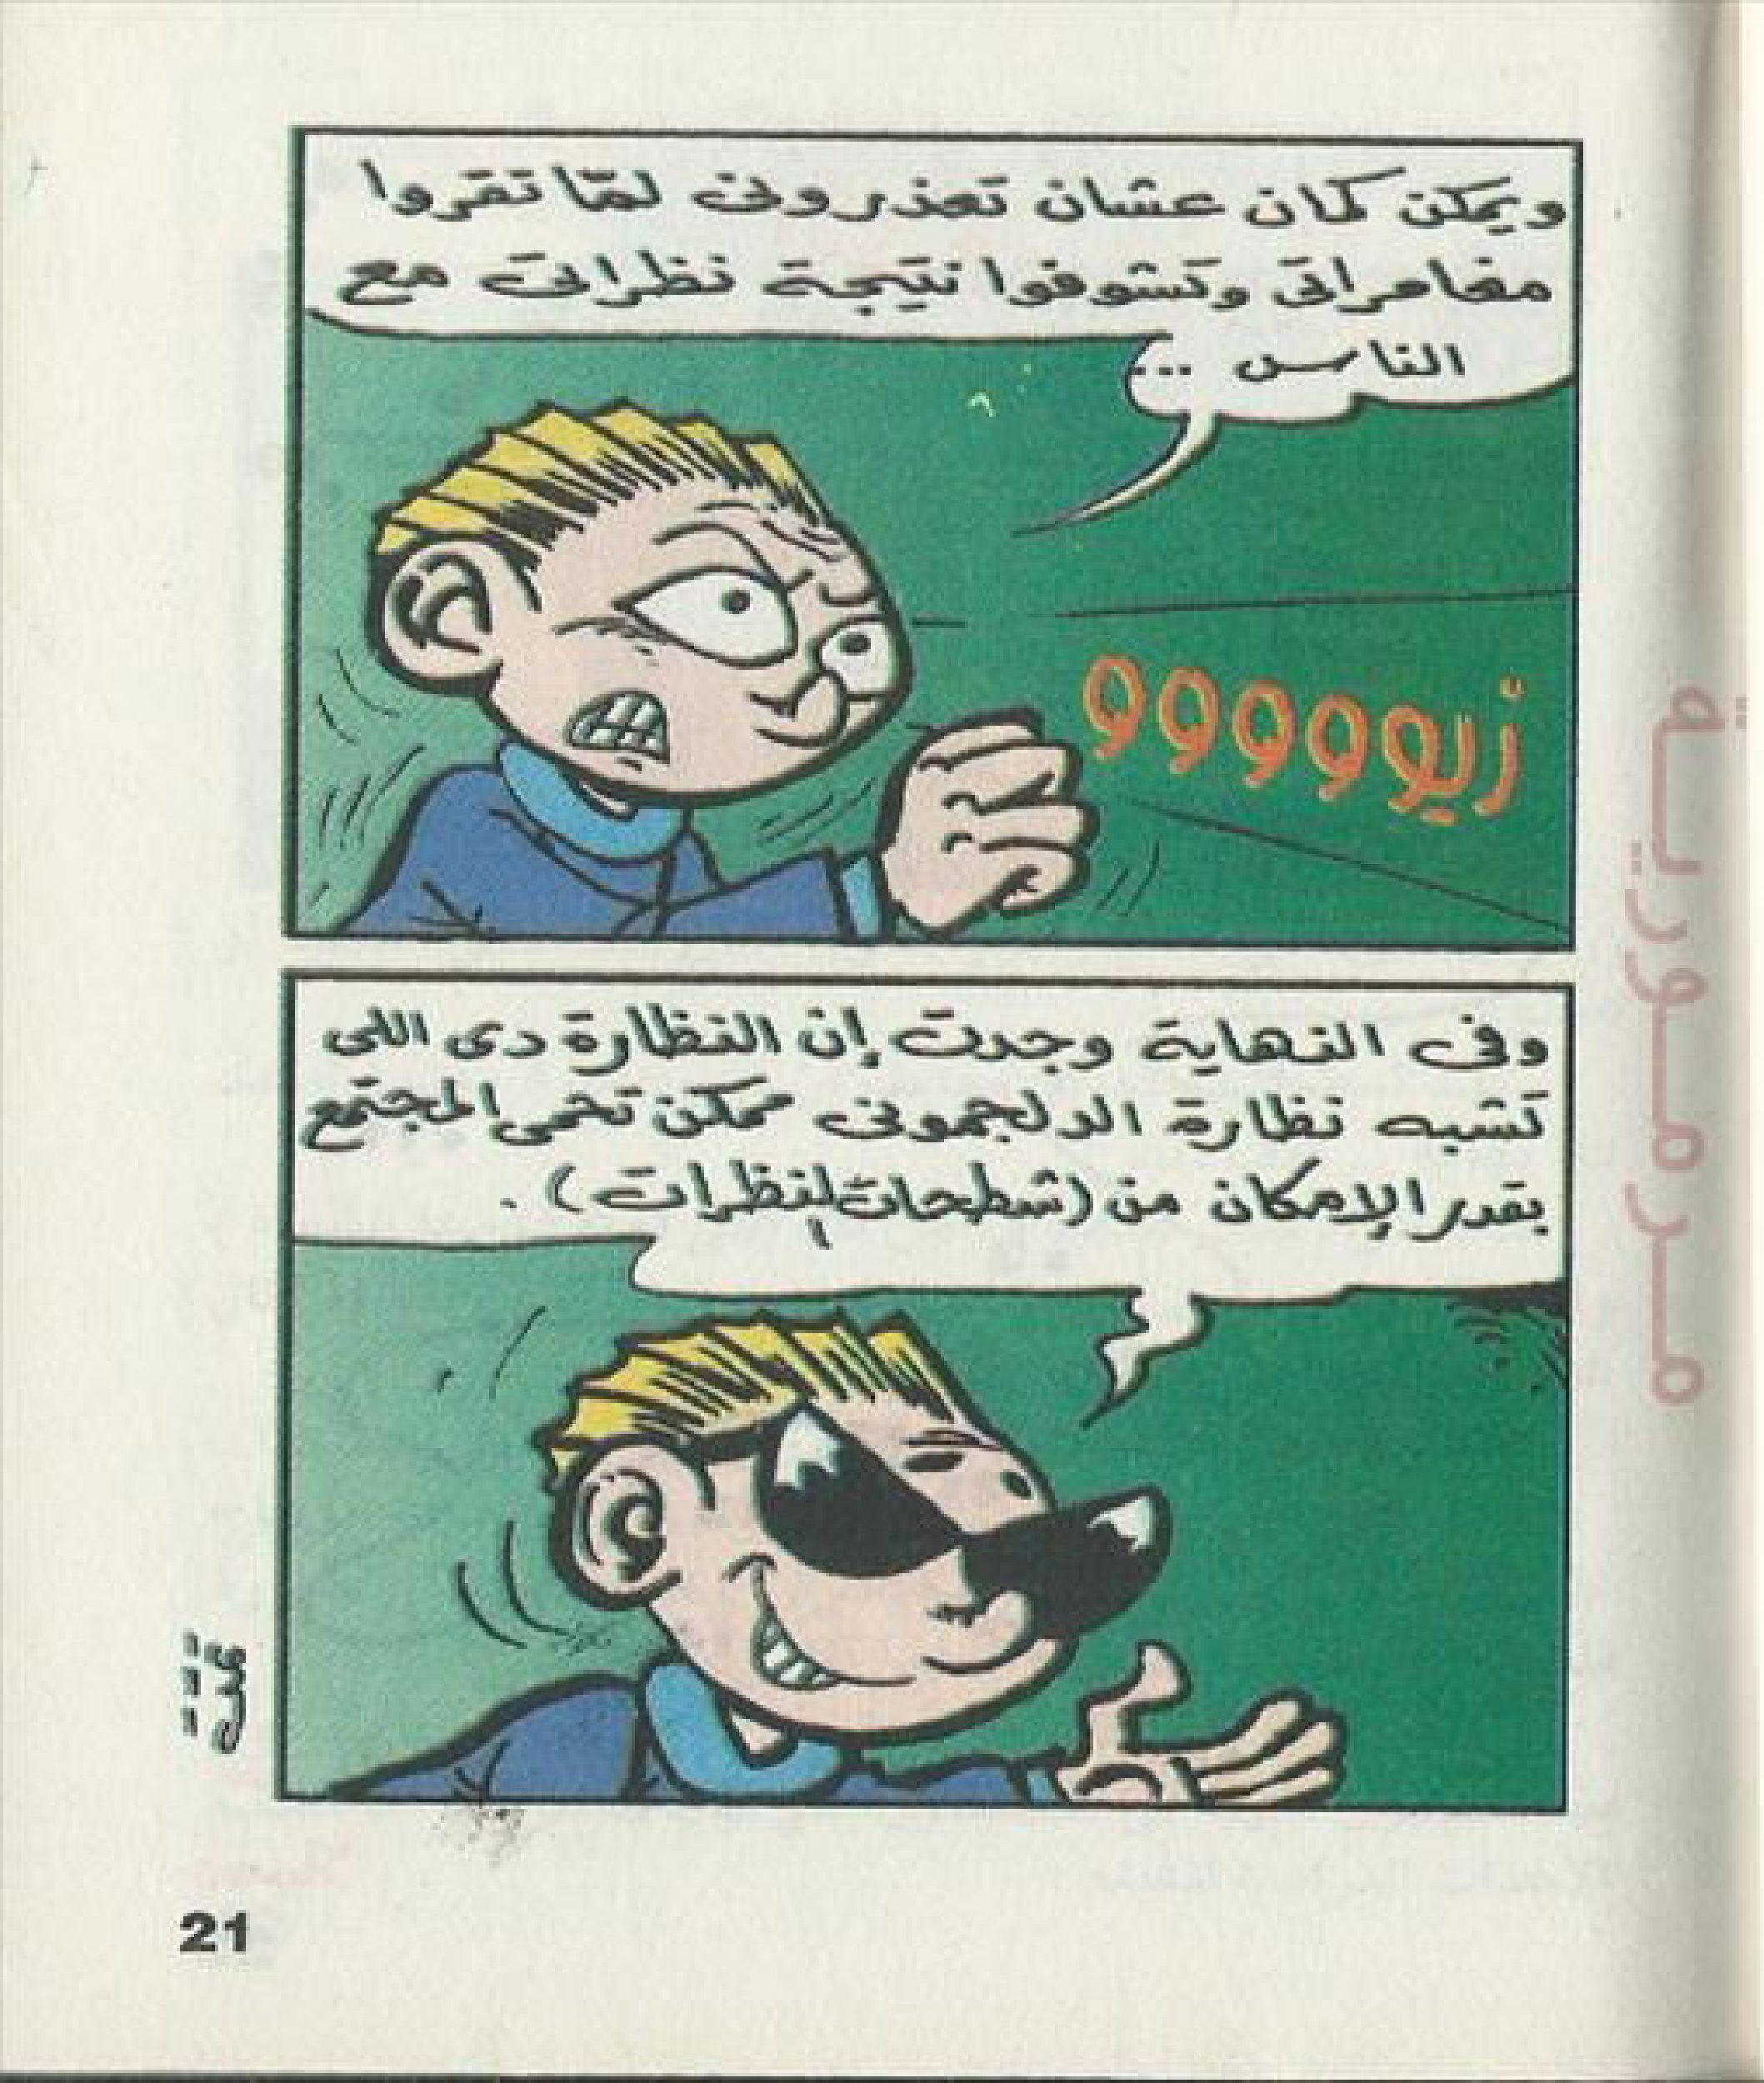 ويمكن كمان عشان تعذرونى لمّا تقروا
مغامراتى وتشوفوا نتيجة نظراتى مع
الناس ...
زيوووووو
وفى النهاية وجدت إن النظارة دى اللى
تشبه نظارة الدلجمونى ممكن تحمى المجتمع
بقدر الإمكان من (شطحات النظرات) .
مرمورية
21